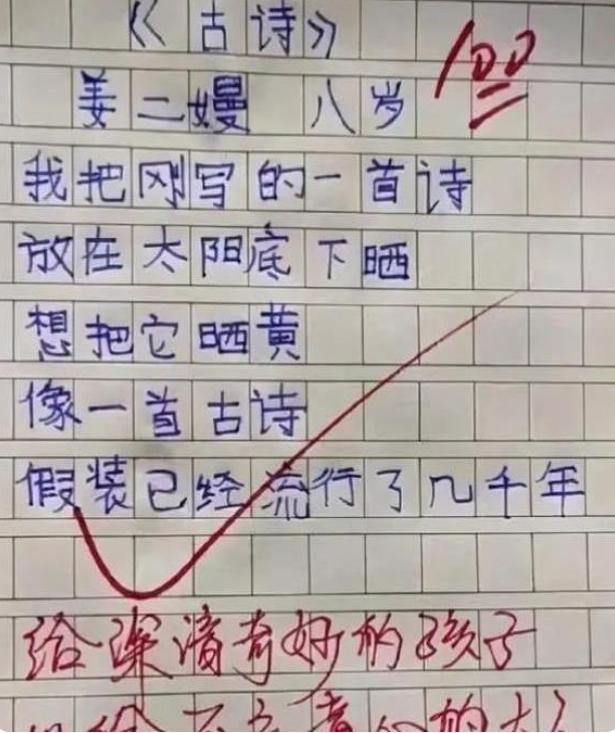 《古诗》
100
姜二嫚 八岁
我把刚写的一首诗
放在太阳底下晒
想把它晒黄
像一首古诗
假装已经流行了几千年
给深清奇好的孩子